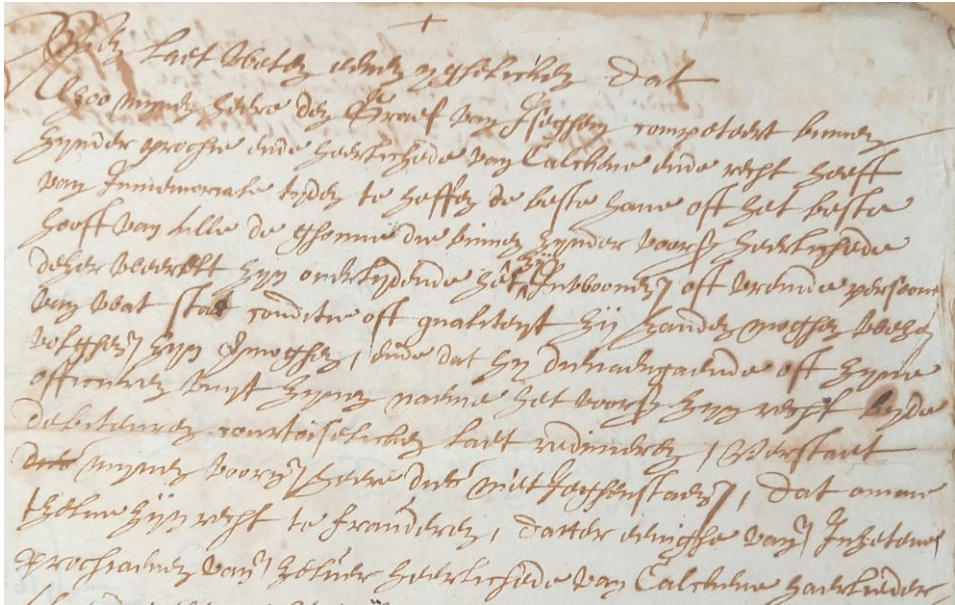 Men laet weten eenen yghelicken dat
Alzoo mynen heere den Graef van Iseghem competeert binnen
zynder prochie ende heerlichede van Calckene ende recht heeft
van Inmemoriale tyden te heffen de beste have oft het beste
hooft van alle de ghonne die binnen zynder voors heerlichede
deser weerelt zyn overlydende het zy Inwoonen oft vremde persoonen
van wat staet conditie oft qualiteyt zy zouden moghen wesen
volghen zyn vermoghen, ende dat hy dienaengaende oft zyne
officieren uuyt zynen naeme het voors zyn recht by de
debiteuren courtoiselicken laet redimeren, Verstaet
mynen voorn heere dies niet jeghenstaen, dat omme
tzelve zyn recht te frauderen, datter eenighe van Inzetene
prochianen van zelver heerlichede van Calckene haerlieder